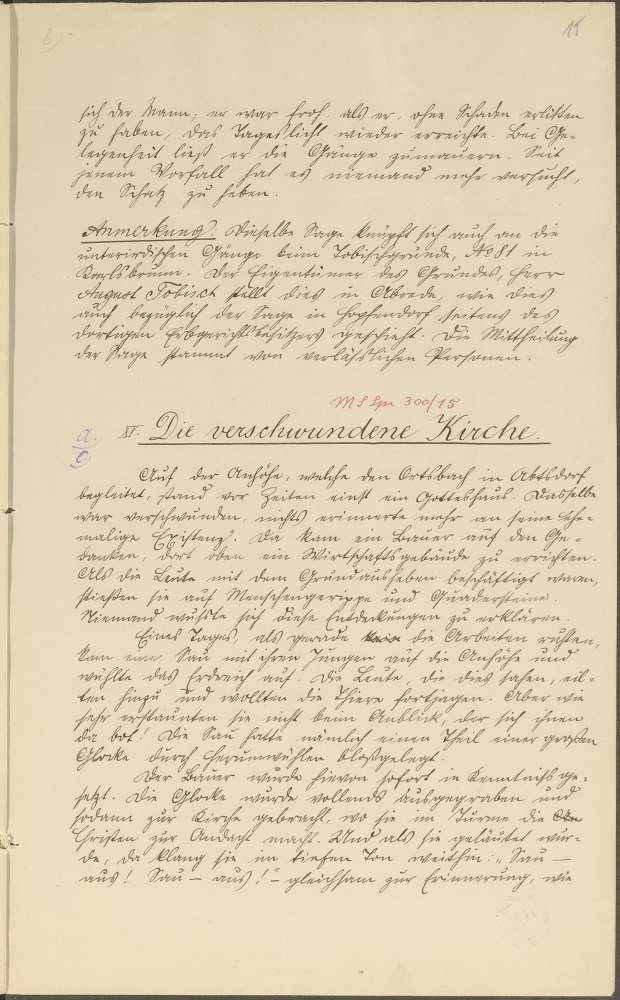 6)-
15
sich der Mann; er war froh, als er, ohne Schaden erlitten
zu haben, das Tageslicht wieder erreichte. Bei Ge-
legenheit ließ er die Gänge zumauern. Seit
jenem Vorfall hat es niemand mehr versucht,
den Schatz zu heben.
Anmerkung: Dieselbe Sage knüpft sich auch an die
unterirdischen Gänge beim Tobischgrunde, No 81 in
Karlsbrunn. Der Eigentümer des Grundes, Herr
August Tobisch stellt dies in Abrede, wie dies
auch bezüglich der Sage in Hopfendorf seitens des
dortigen Erbgerichtsbesitzers geschieht. Die Mittheilung
der Sage stammt von verlässlichen Personen.
300/15
a. XV. Die verschwundene Kirche.
Auf der Anhöhe, welche den Ortsbach in Abtsdorf
begleitet, stand vor Zeiten einst ein Gotteshaus. Dasselbe
war verschwunden, nichts erinnerte mehr an seine ehe-
malige Existenz. Da kam ein Bauer auf den Ge-
danken, dort oben ein Wirtschaftsgebäude zu errichten.
Als die Leute mit dem Grundausheben beschäftigt waren,
stießen sie auf Menschengerippe und Quadersteine.
Niemand wußte sich diese Entdeckungen zu erklären.
Eines Tages, als gerade die Arbeiten ruhten,
kam eine Sau mit ihren Jungen auf die Anhöhe und
wühlte das Erdreich auf. Die Leute, die dies sahen, eil-
ten hinzu und wollten die Thiere fortjagen. Aber wie
sehr erstaunten sie nicht beim Anblick, der sich ihnen
da bot! Die Sau hatte nämlich einen Theil einer großen
Glocke durch Herumwühlen bloßgelegt.
Der Bauer wurde hievon sofort in Kenntniß ge-
setzt. Die Glocke wurde vollends ausgegraben und
sodann zur Kirche gebracht, wo sie im Turme die
Christen zur Andacht macht. Und als sie geläutet wur-
de, da klang sie im tiefen Ton weithin: „Sau —
aus! Sau — aus!" — gleichsam zur Erinnerung, wie